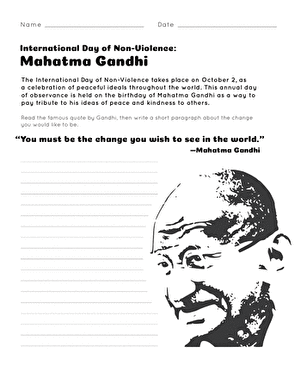 Name Date
International Day of Non-Violence:
Mahatma Gandhi
The International Day of Non-Violence takes place on October 2, as
a celebration of peaceful ideals throughout the world. This annual day
of observance is held on the birthday of Mahatma Gandhi as a way to
pay tribute to his ideas of peace and kindness to others.
Read the famous quote by Gandhi, then write a short paragraph about the change
you would like to be.
“You must be the change you wish to see in the world.”
—Mahatma Gandhi